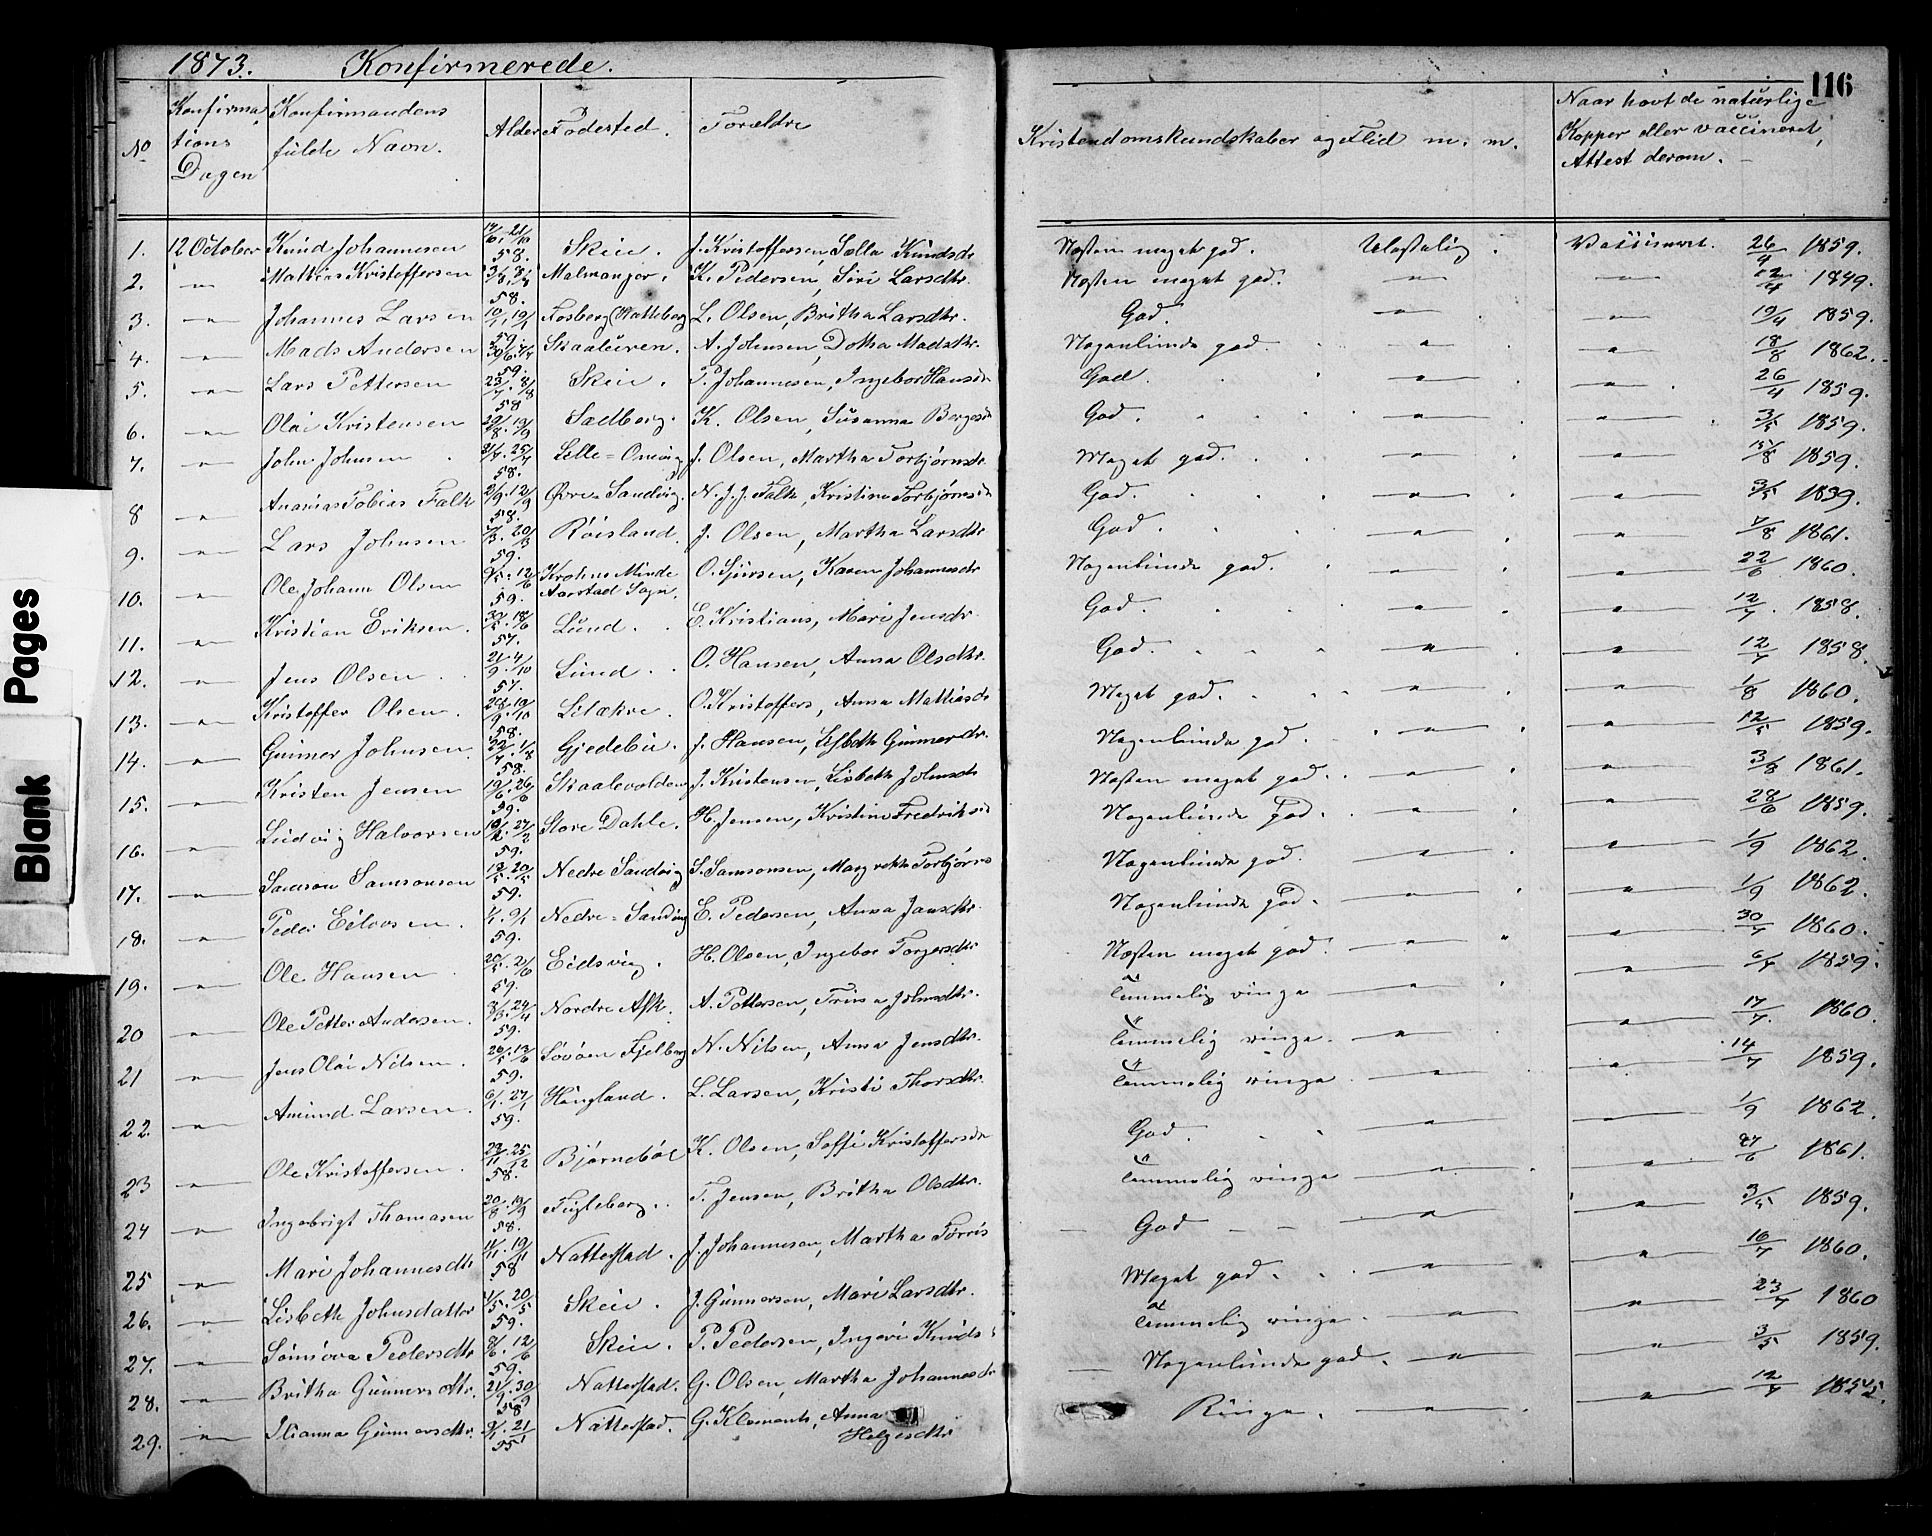 1873. Konfirmerede.
116
No
Konfirma
tions
Dagen
Konfirmandens
fulde Navn.
Alder
Fødested.
Forældre
Kristendomskundskaber og Flid m. m.
Naar havt de naturlige
Kopper eller vaccineret,
Attest derom. —
1. 12 October Knud Johannesen 58. Skeie. J. Kristoffersen, Knudsdr Næsten meget god. Ulastelig. Vaccineret. 26/4 1859.
2. —"— Mathias Kristoffersen 58. Malmanger. K. Pedersen, Siri Larsdtr. Næsten meget god. —"— —"— 1849.
3. —"— Johannes Larsen 19/1 59. L. Olsen, Britha Larsdtr. God. —"— —"— 19/4 1859.
4. —"— Mads Andersen 59. Skaaluren. A. Johnsen, Dotha Madsdtr. Nogenlunde god. —"— —"— 18/8 1862.
5. —"— Lars Pettersen 23/7. 8/8 58 Skeie. P. Johannesen, Ingebor Hansd God. —"— —"— 26/4 1859.
6. —"— Olai Kristensen Sædberg. K. Olsen, Susanna Bergesd God. —"— —"— 3/5 1859.
7. —"— John Johnsen 58. Lille=Omvig J. Olsen, Martha Torbjørnsd. Meget god. —"— —"— 15/8 1859.
8 —"— Ananias Tobias Falk 2/9. 12/9 58. Øvre=Sandvig. N. J. J. Falk, Kristine Torbjørnsd God. —"— —"— 3/5 1839.
9. —"— Lars Johnsen 20/3 59. Røisland. J. Olsen, Martha Larsdtr God. —"— —"— 7/8 1861.
10. —"— Ole Johann Olsen 12/6 59. Krohns Minde
Aarstad Sogn. O. Sjursen, Karen Johannesdr Nogenlunde god. —"— —"— 22/6 1860.
11. —"— Kristian Eriksen. 18/6 57. Lund. E. Kristians, Mari Jensdr. God. —"— —"— 12/7. 1858.
12. —"— Jens Olsen. 21/9. 4/10 57. Lund. O. Hansen, Anna Olsdtr. God. —"— —"— 12/7 1858.
13. —"— Kristoffer Olsen. 28/9. 19/10 58. Lilækre. O. Kristoffers, Anna Mathiasdr Meget god. —"— —"— 1/8 1860.
14. —"— Gunner Johnsen 22/7. 1/8 58. Gjedebu. J. Hansen, Lisbeth Gunnerdr. Nogenlunde god. —"— —"— 12/5 1859.
15. —"— Kristen Jensen 19/6. 26/6 59. Skaalevolden J. Kristensen, Lisbeth Johnsdr Næsten meget god. —"— —"— 3/8 1861.
16. —"— Ludvig Halvorsen 27/2 59. Store Dahle. H. Jensen, Kristine Fredriksd Nogenlunde god. —"— —"— 28/6 1859.
17. —"— Samson Samsonsen 20/5 59. Nedre Sandvig S. Samsonsen, Margrethe Torbjørns Nogenlunde god. —"— —"— 1/9 1862.
18. —"— Peder Eilvsen. 1/1. 9/1 59. Nedre=Sandvig E. Pedersen, Anna Jansdtr. Nogenlunde god. —"— —"— 1/9 1862.
19. —"— Ole Hansen 59. Eidsvig. H. Olsen, Ingebor Torgersdtr Næsten meget god. —"— —"— 30/7 1860.
20 —"— Ole Petter Andersen. 24/4 59. Nordre Ask. A. Pettersen, Trina Johnsdtr. Temmelig ringe —"— —"— 1859.
21 —"— Jens Olai Nilsen. 26/5. 13/6 59. Søvøen Fjelberg N. Nilsen, Anna Jensdtr. Temmelig ringe. —"— —"— 17/7. 1860.
22. —"— Amund Larsen. 6/1. 27/1 59. Haugland. L. Larsen, Kristi Thorsdtr. Temmelig ringe —"— —"— 14/7 1859.
23 —"— Ole Kristoffersen. 25/12 58. Bjørnebøl K. Olsen, Soffi Kristoffersdr God. —"— —"— 1/9 1862.
24 —"— Ingebrigt Thomasen 20/8. 19/9 58. Fugleberg. T. Jensen, Britha Olsdtr. Temmelig ringe —"— —"— 27/6 1861.
25 —"— Mari Johannesdtr 19/11 58 Natterstad. J. Johannesen, Martha Torris God —"— —"— 3/5 1859.
26. —"— Lisbeth Johnsdatter 1/5. 20/5 59. Skeie. J. Gunnersen, Mari Larsdtr. Meget god. —"— —"— 16/7 1860.
27. —"— Sømøva Pedersdtr 12/6 59. Skeie. P. Pedersen, Ingeri Knuds Temmelig ringe. —"— —"— 23/7 1860
28. —"— Britha Gunnersdtr. 21/9. 30/9 58 Natterstad. G. Olsen, Martha Johannesdr Nogenlunde god. —"— —"— 3/5 1859.
29. —"— Ilianna Gunnersdtr. 21/1 55 Natterstad. G. Klements, Anna
Helgesdtr Ringe. —"— —"— 12/7 1855.
Blank Pages